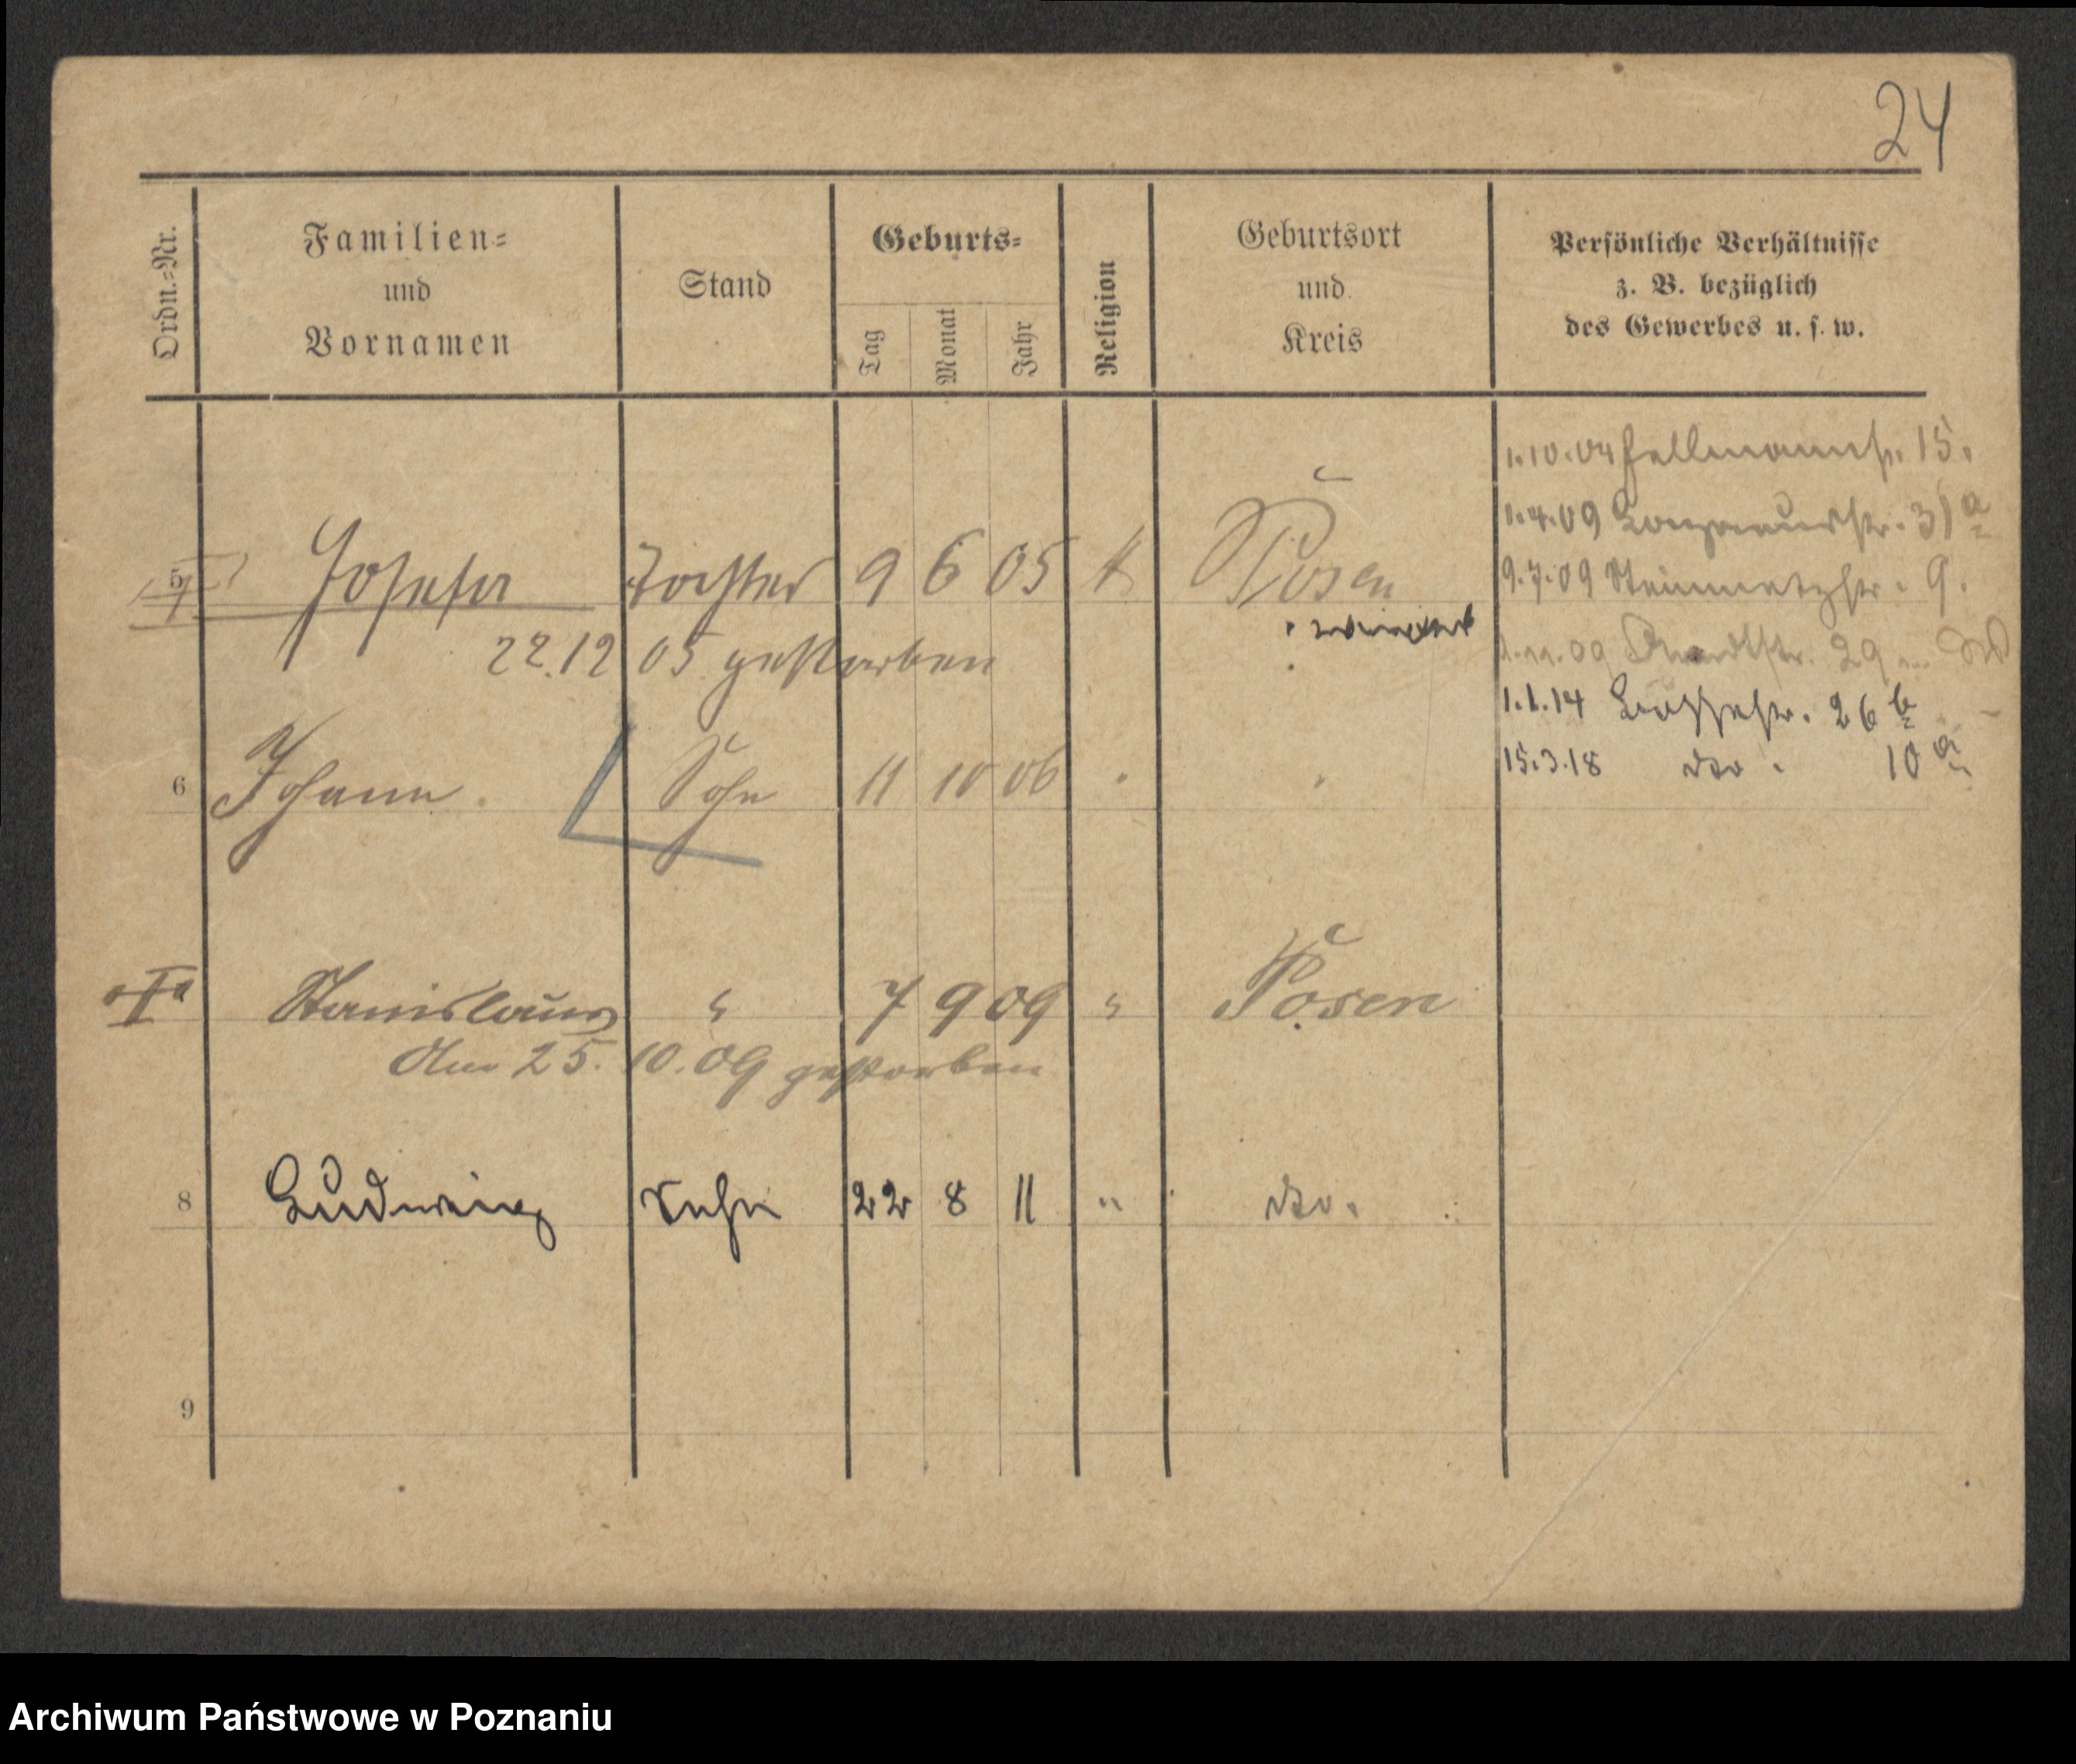 24
Ordn.=Nr.
Familien=
und
Vornamen
Stand
Geburts=
Tag
Monat
Jahr
Religion
Geburtsort
und
Kreis
Persönliche Verhältnisse
z. B. bezüglich
des Gewerbes u. s. w.
1.10.04 Hellmannstr. 15.
1.4.09 31 a
9.7.09 Steinmetzstr. 9.
09 29
1.1.14 26 b
15.3.18 dto. 10 a
5 Josefa Tochter 9 6 05 k Posen
22.12 05 gestorben
6 Johann Sohn 11 10 06 "
Stanislaus " 7 9 09 " Posen
Am 25. 10. 09 gestorben
8 Ludwig Sohn 22 8 11 " dto.
9
Archiwum Państwowe w Poznaniu